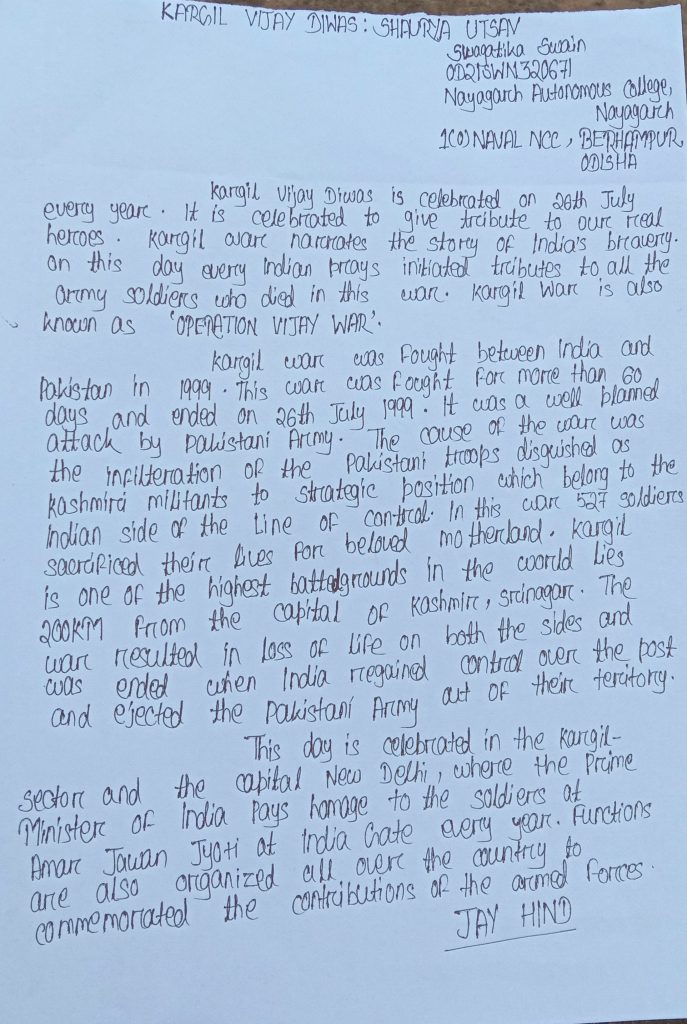 KARGIL VIJAY DIWAS: SHAURYA UTSAV
Swagatika Swain
OD21SWN320671
Nayagarh Autonomous College,
Nayagarh
1(O) NAVAL NCC, BERHAMPUR,
ODISHA
Kargil Vijay Diwas is celebrated on 26th July
every year. It is celebrated to give tribute to our real
heroes. Kargil war narrates the story of India's bravery.
on this day every Indian prays initiated tributes to all the
army soldiers who died in this war. Kargil War is also
known as 'OPERATION VIJAY WAR'.
Kargil war was fought between India and
Pakistan in 1999. This war was fought for more than 60
days and ended on 26th July 1999. It was a well planned
attack by Pakistani Army. The cause of the war was
the infilteration of the Pakistani troops disguished as
Kashmiri militants to strategic position which belong to the
Indian side of the Line of control. In this war 527 soldiers
sacrificed their lives for beloved motherland. Kargil
is one of the highest battelgrounds in the world lies
200KM from the capital of Kashmir, srinagar. The
war resulted in loss of life on both the sides and
was ended when India regained control over the post
and ejected the Pakistani Army out of their teritory.
This day is celebrated in the Kargil-
sector and the capital New Delhi, where the Prime
Minister of India Pays homage to the soldiers at
Amar Jawan Jyoti at India Gate every year. Functions
are also organized all over the country to
commemorated the contributions of the armed forces.
JAY HIND